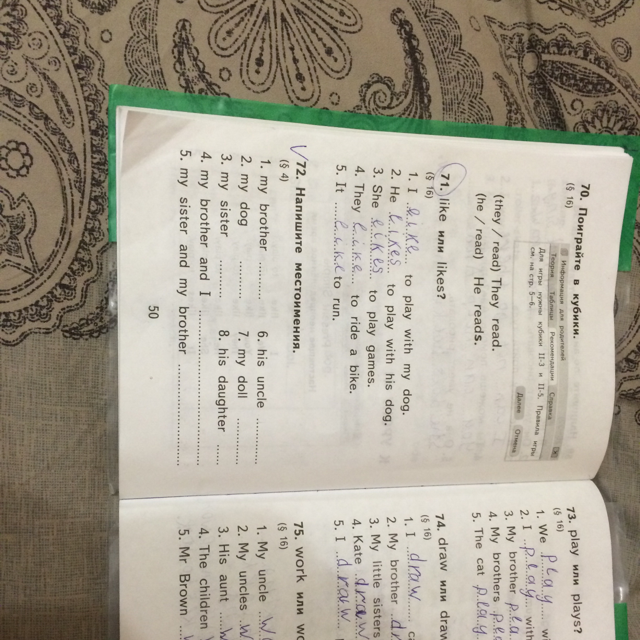 70. Поиграйте в кубики.
(§ 16)
Информация для родителей
Теория Таблицы Рекомендации Справка
Для игры нужны кубики II-3 и II-5. Правила игры
см. на стр. 5—6.
Далее Отмена
(they / read) They read.
(he / read) He reads.
71. like или likes?
(§ 16)
1. I like to play with my dog.
2. He likes to play with his dog.
3. She likes to play games.
4. They like to ride a bike.
5. It like to run.
72. Напишите местоимения.
(§ 4)
1. my brother ..........
2. my dog ..........
3. my sister ..........
4. my brother and I ..........
5. my sister and my brother ..........
6. his uncle ..........
7. my doll ..........
8. his daughter ..........
50
73. play или plays?
(§ 16)
1. We play
2. I play with
3. My brother
4. My brothers
5. The cat play
74. draw или draw
(§ 16)
1. I draw
2. My brother
3. My little sisters
4. Kate draw
5. I draw
75. work или wo
(§ 16)
1. My uncle
2. My uncles
3. His aunt
4. The children
5. Mr Brown